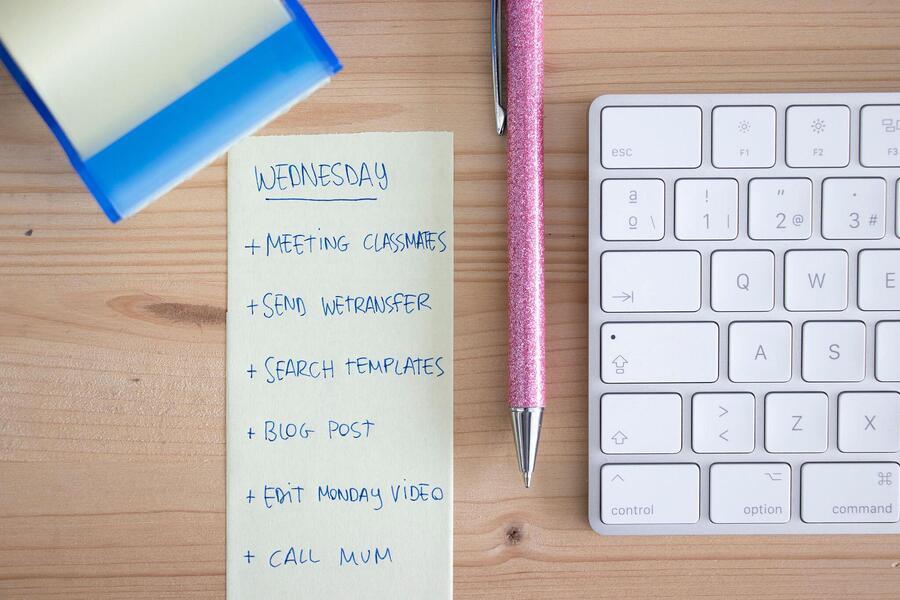 WEDNESDAY
+ MEETING CLASSMATES
+ SEND WETRANSFER
+ SEARCH TEMPLATES
+ BLOG POST
+ EDIT MONDAY VIDEO
+ CALL MUM
esc F1 F2 F3
a ! " ·
o \ 1 | 2 @ 3 #
Q W E
A S
> Z X
<
control option command